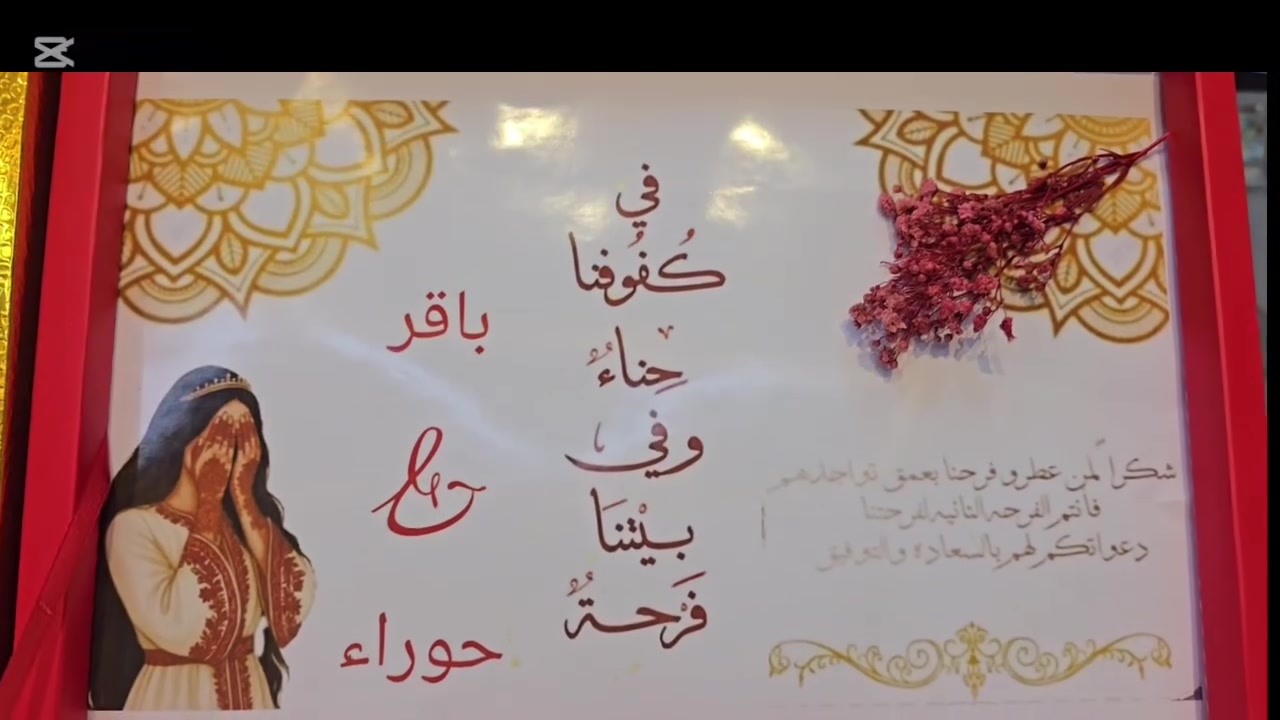 في
كُفُوفنا
حِناءٌ
وفي
بيْتنَا
فَرحةٌ
باقر
&
حوراء
شكراً لمن عطرو فرحنا بعمق تواجدهم
فانتم الفرحه الثانيه لفرحتنا
دعواتكم لهم بالسعادة والتوفيق